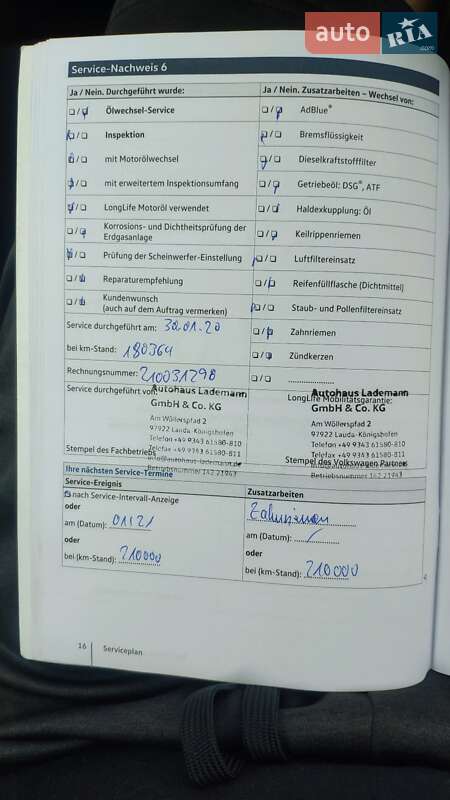 auto RIA.com
Service-Nachweis 6
Ja / Nein. Durchgeführt wurde:
Ölwechsel-Service
Inspektion
mit Motorölwechsel
mit erweitertem Inspektionsumfang
LongLife Motoröl verwendet
Korrosions- und Dichtheitsprüfung der
Erdgasanlage
Prüfung der Scheinwerfer-Einstellung
Reparaturempfehlung
Kundenwunsch
(auch auf dem Auftrag vermerken)
Service durchgeführt am: 30.01.20
bei km-Stand: 180364
Rechnungsnummer: 210031298
Service durchgeführt von:
Autohaus Lademann
GmbH & Co. KG
Am Wöllerspfad 2
97922 Lauda-Königshofen
Telefon +49 9343 61580-810
Telefax +49 9343 61580-811
info@autohaus-lademann.de
Betriebsnummer 162 21943
Stempel des Fachbetriebs
Ja / Nein. Zusatzarbeiten – Wechsel von:
AdBlue®
Bremsflüssigkeit
Dieselkraftstofffilter
Getriebeöl: DSG®, ATF
Haldexkupplung: Öl
Keilrippenriemen
Luftfiltereinsatz
Reifenfüllflasche (Dichtmittel)
Staub- und Pollenfiltereinsatz
Zahnriemen
Zündkerzen
LongLife Mobilitätsgarantie:
Autohaus Lademann
GmbH & Co. KG
Am Wöllerspfad 2
97922 Lauda-Königshofen
Telefon +49 9343 61580-810
Telefax +49 9343 61580-811
Betriebsnummer 162 21943
Stempel des Volkswagen Partners
Ihre nächsten Service-Termine
Service-Ereignis
nach Service-Intervall-Anzeige
oder
am (Datum): 01/21
oder
bei (km-Stand): 210000
Zusatzarbeiten
Zahnriemen
am (Datum): /
oder
bei (km-Stand): 210000
16 Serviceplan